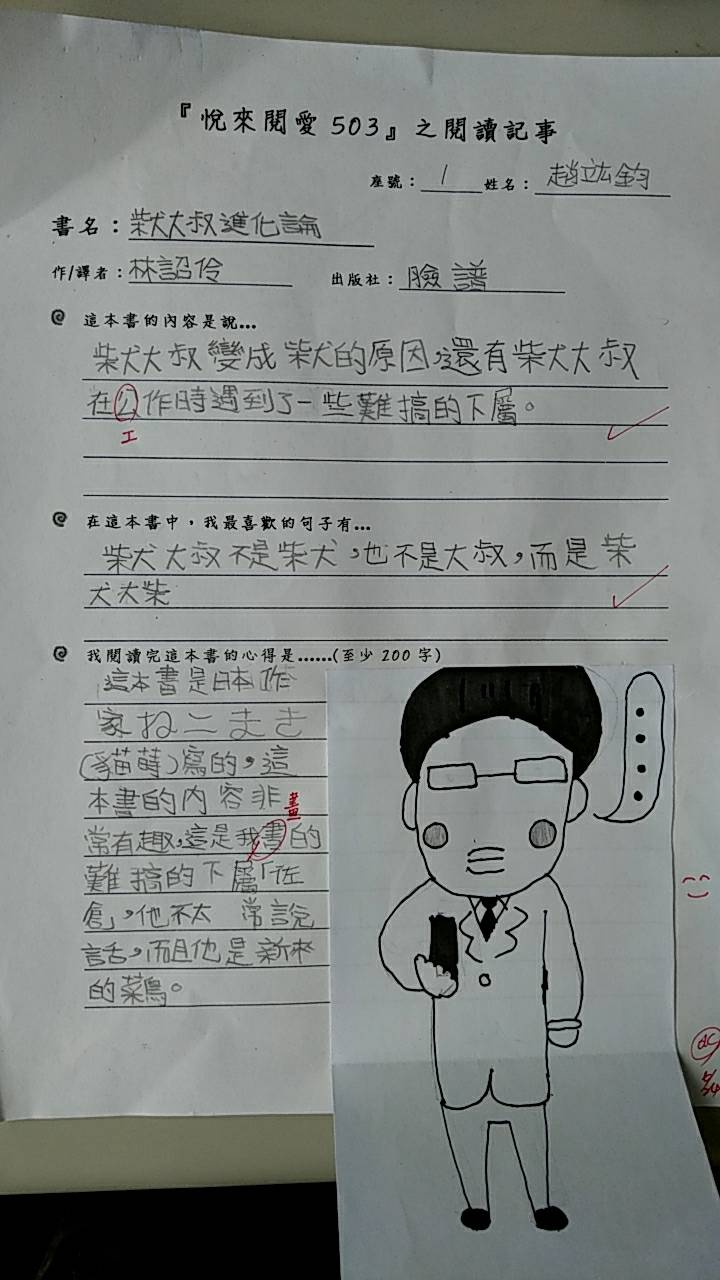 『悅來閱愛503』之閱讀記事
座號：1 姓名：趙竑鈞
書名：柴犬大叔進化論
作/譯者：林詔伶 出版社：臉譜
這本書的內容是說...
柴犬大叔變成柴犬的原因，還有柴犬大叔
在公作時遇到了一些難搞的下屬。
工
在這本書中，我最喜歡的句子有...
柴犬大叔不是柴犬，也不是大叔，而是柴
犬大柴
我閱讀完這本書的心得是......(至少200字)
這本書是日本作
家ねこまき
(貓蒔)寫的，這
本書的內容非
畫
常有趣，這是我書的
難搞的下屬「佐
倉」，他不太 常說
話，而且他是新來
的菜鳥。